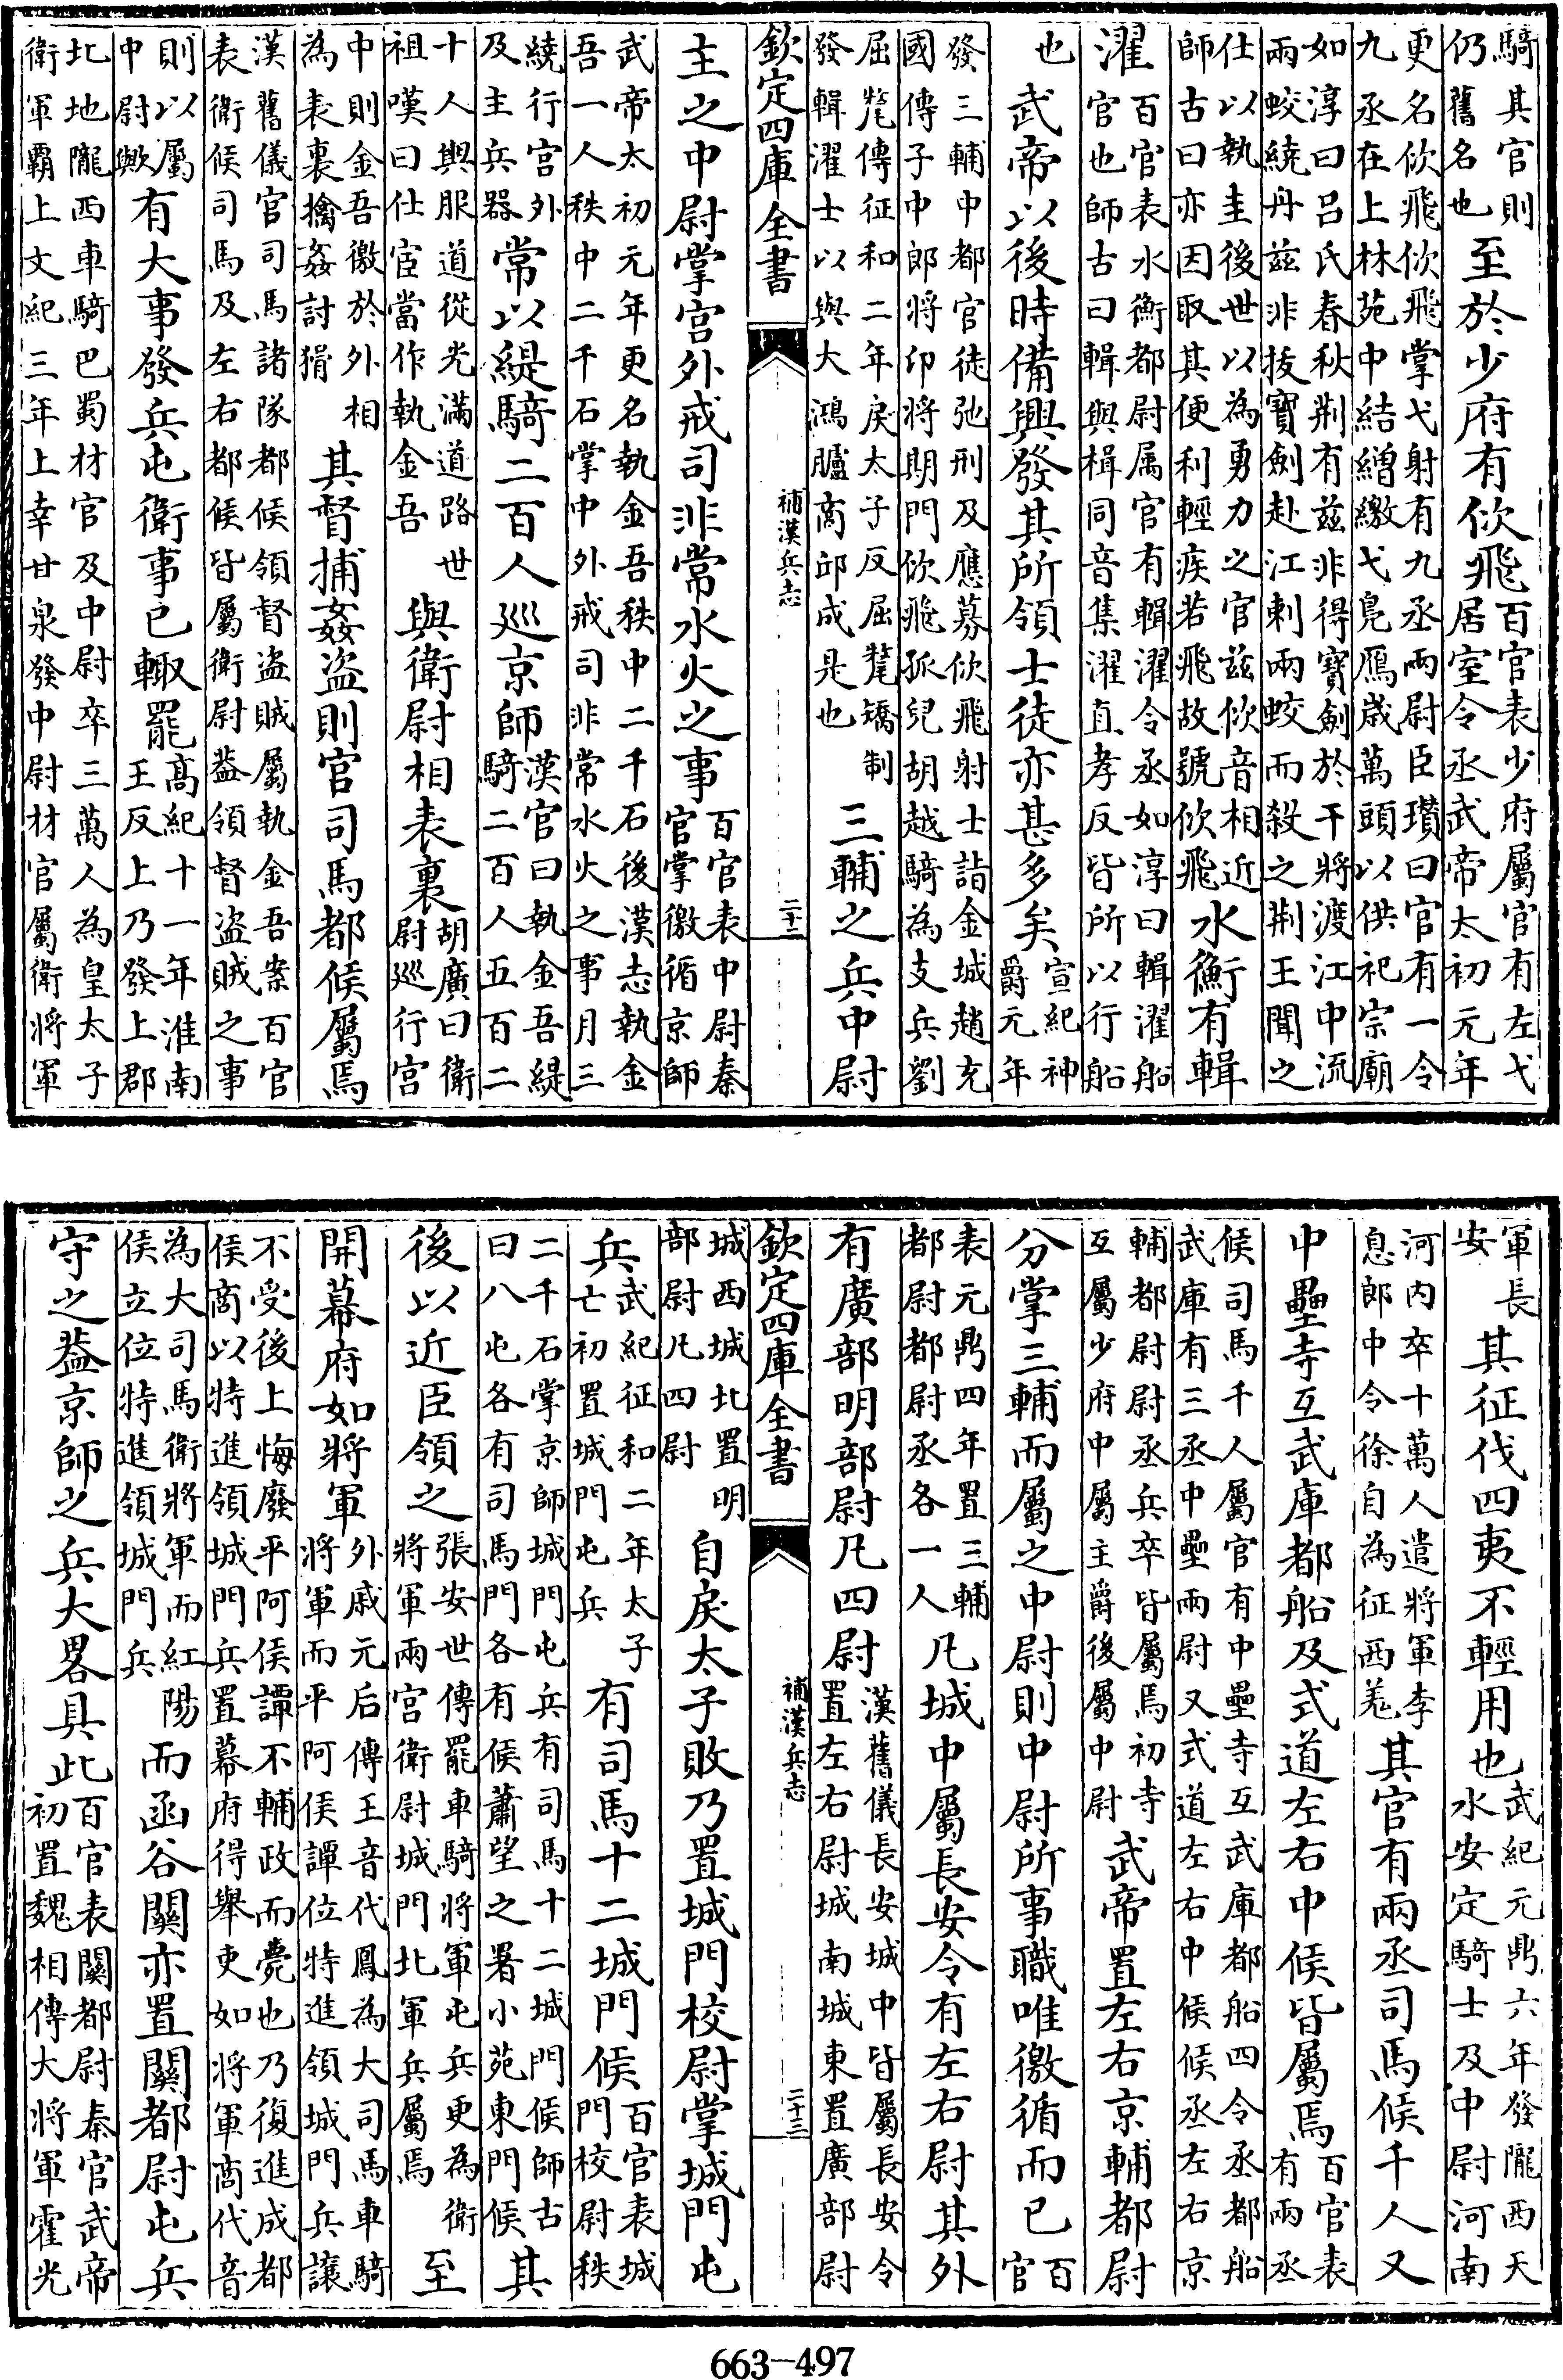 騎其官則
仍舊名也
至於少府有佽飛
百官表少府屬官有左弋
居室令丞武帝太初元年
更名佽飛佽飛掌弋射有九丞兩尉臣瓚曰官有一令
九丞在上林苑中結繒繳弋鳧鴈歳萬頭以供祀宗廟
如淳曰吕氏春秋荆有兹非得寳劍於干將渡江中流
兩蛟繞丹兹非㧞寳劍赴江刺兩蛟而殺之荆王聞之
仕以執圭後世以為勇力之官兹佽音相近
師古曰亦因取其便利輕疾若飛故號佽飛
水衡有輯
濯
百官表水衡都尉属官有輯濯令丞如淳曰輯濯船
官也師古曰輯與楫同音集濯直孝反皆所以行船
也
武帝以後時備興發其所領士徒亦甚多矣
宣紀神
爵元年
發三輔中都官徒弛刑及應募佽飛射士詣金城趙充
國傳子中郎將卬將期門佽飛孤兒胡越騎為支兵劉
屈氂傳征和二年戾太子反屈氂矯制
發輯濯士以與大鴻臚商邱成是也
三輔之兵中尉
欽定四庫全書
補漢兵志
二十二
主之中尉掌宫外戒司非常水火之事
百官表中尉秦
官掌徼循京師
武帝太初元年更名執金吾秩中二千石後漢志執金
吾一人秩中二千石掌中外戒司非常水火之事月三
繞行宫外
及主兵器
常以緹騎二百人巡京師
漢官曰執金吾緹
騎二百人五百二
十人輿服道從光滿道路世
祖嘆曰仕宦當作執金吾
與衛尉相表裏
胡廣曰衛
尉巡行宫
中則金吾徼於外相
為表裏擒姦討猾
其督捕姦盗則官司馬都候屬焉
漢舊儀官司馬諸隊都候領督盗賊屬執金吾案百官
表衛候司馬及左右都候皆屬衛尉葢領督盗賊之事
則以屬
中尉歟
有大事發兵屯衛事已輙罷
髙紀十一年淮南
王反上乃發上郡
北地隴西車騎巴蜀材官及中尉卒三萬人為皇太子
衛軍霸上文紀三年上幸甘泉發中尉材官屬衛將軍
軍長
安
其征伐四夷不輕用也
武紀元鼎六年發隴西天
水安定騎士及中尉河南
河内卒十萬人遣將軍李
息郎中令徐自為征西羌
其官有兩丞司馬候千人又
中壘寺互武庫都船及式道左右中候皆屬焉
百官表
有兩丞
候司馬千人屬官有中壘寺互武庫都船四令丞都船
武庫有三丞中壘兩尉又式道左右中候候丞左右京
輔都尉尉丞兵卒皆屬焉初寺
互屬少府中屬主爵後屬中尉
武帝置左右京輔都尉
分掌三輔而屬之中尉則中尉所事職唯徼循而已
百
官
表元鼎四年置三輔
都尉都尉丞各一人
凡城中屬長安令有左右尉其外
有廣部明部尉凡四尉
漢舊儀長安城中皆屬長安令
置左右尉城南城東置廣部尉
欽定四庫全書
補漢兵志
二十三
城西城北置明
部尉凡四尉
自戾太子敗乃置城門校尉掌城門屯
兵
武紀征和二年太子
亡初置城門屯兵
有司馬十二城門候
百官表城
門校尉秩
二千石掌京師城門屯兵有司馬十二城門候師古
曰八屯各有司馬門各有候蕭望之署小苑東門候
其
後以近臣領之
張安世傳罷車騎將軍屯兵更為衛
將軍兩宫衛尉城門北軍兵屬焉
至
開幕府如將軍
外戚元后傳王音代鳳為大司馬車騎
將軍而平阿侯譚位特進領城門兵讓
不受後上悔廢平阿侯譚不輔政而薨也乃復進成都
侯商以特進領城門兵置幕府得舉吏如將軍商代音
為大司馬衛將軍而紅陽
侯立位特進領城門兵
而函谷關亦置關都尉屯兵
守之葢京師之兵大畧具此
百官表關都尉秦官武帝
初置魏相傳大將軍霍光
663-497